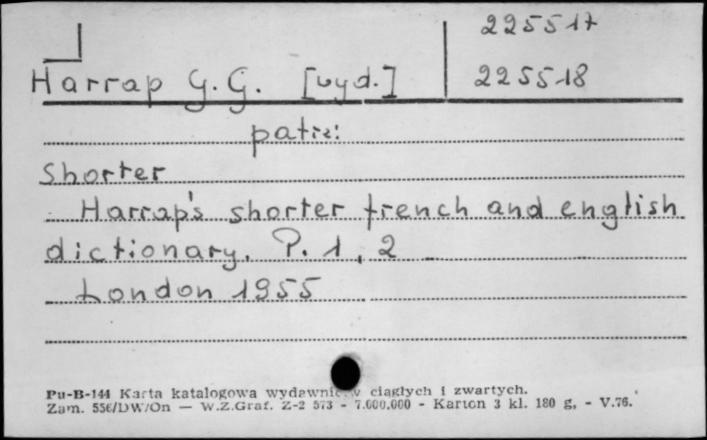 225517
Harrap G. G. [wyd.] 225518
patrz:
Shorter
Harrap's shorter french and english
dictionary. P. 1, 2
London 1955
Pu-B-144 Karta katalogowa wydawnictw ciągłych i zwartych.
Zam. 556/DW/On — W.Z.Graf. Z-2 573 - 7.000.000 - Karton 3 kl. 180 g, - V.76.